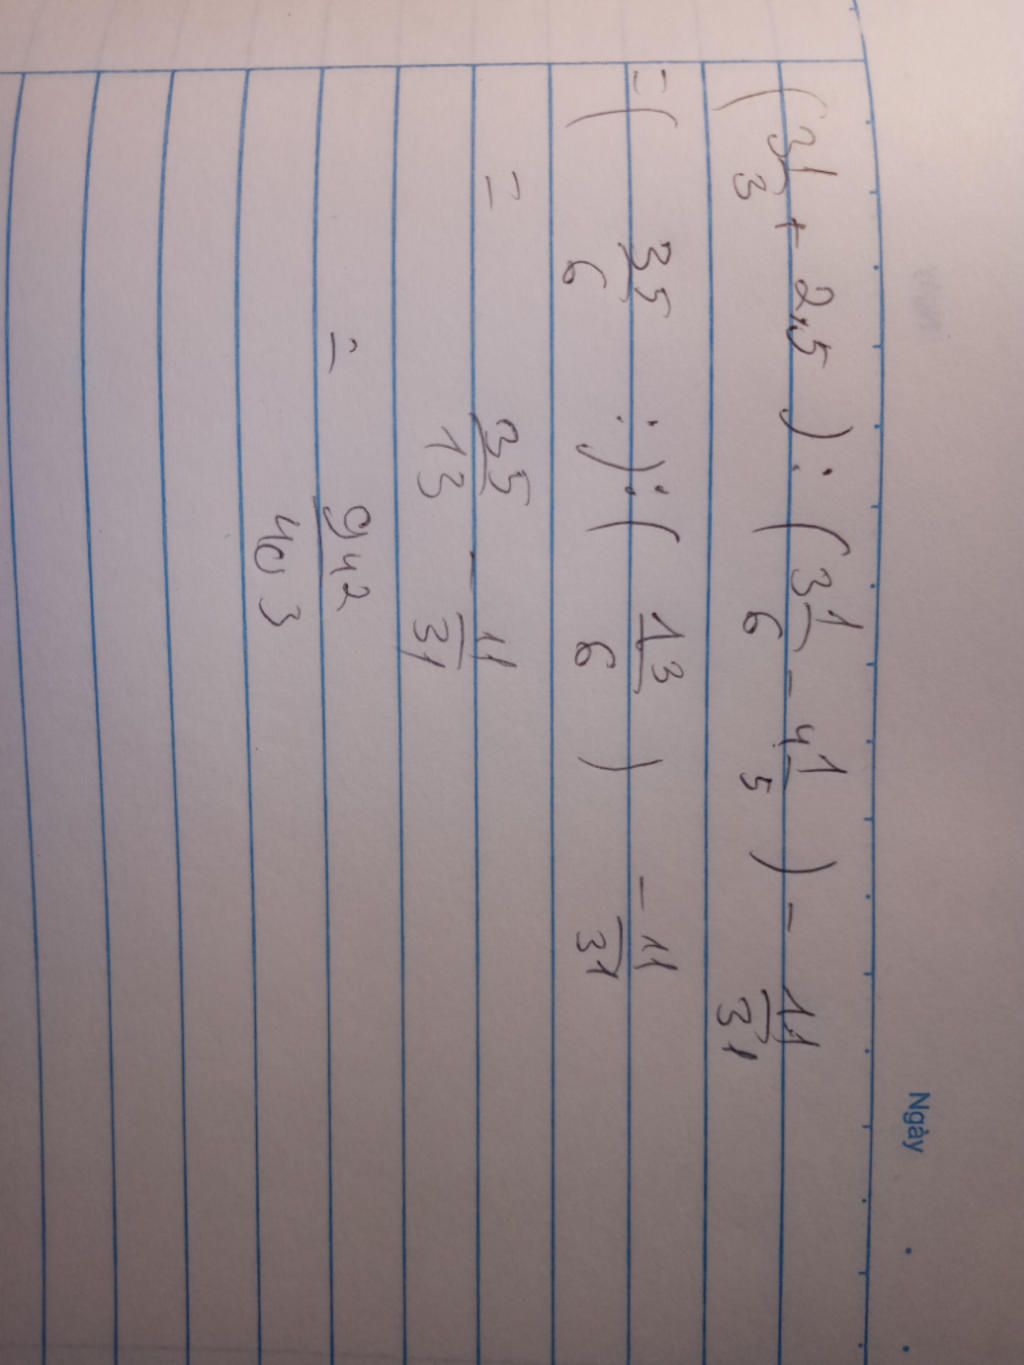 Ngày
(3 1/3 + 2,5) : (3 1/6 - 4 1/5) - 11/31
= ( 35/6 : ) : ( 13/6 ) - 11/31
= 35/13 - 11/31
= 942/403